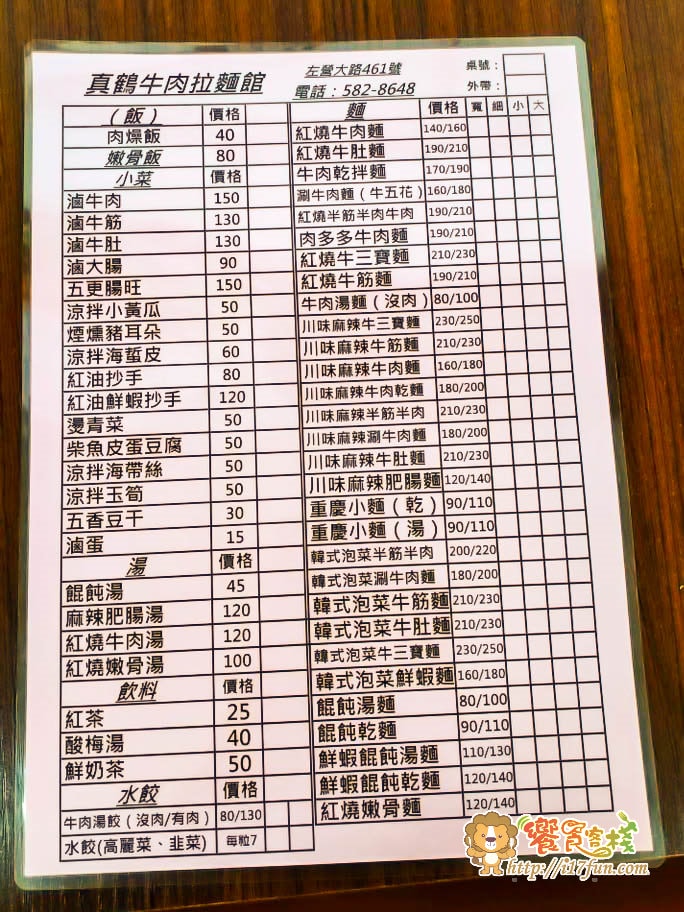 真鶴牛肉拉麵館
左營大路461號
電話：582-8648
桌號：
外帶：
（飯） 價格
肉燥飯 40
嫩骨飯 80
小菜 價格
滷牛肉 150
滷牛筋 130
滷牛肚 130
滷大腸 90
五更腸旺 150
涼拌小黃瓜 50
煙燻豬耳朵 50
涼拌海蜇皮 60
紅油抄手 80
紅油鮮蝦抄手 120
燙青菜 50
柴魚皮蛋豆腐 50
涼拌海帶絲 50
涼拌玉筍 50
五香豆干 30
滷蛋 15
湯 價格
餛飩湯 45
麻辣肥腸湯 120
紅燒牛肉湯 120
紅燒嫩骨湯 100
飲料 價格
紅茶 25
酸梅湯 40
鮮奶茶 50
水餃 價格
牛肉湯餃（沒肉/有肉） 80/130
水餃(高麗菜、韭菜) 每粒7
麵 價格 寬 細 小 大
紅燒牛肉麵 140/160
紅燒牛肚麵 190/210
牛肉乾拌麵 170/190
涮牛肉麵（牛五花） 160/180
紅燒半筋半肉牛肉 190/210
肉多多牛肉麵 190/210
紅燒牛三寶麵 210/230
紅燒牛筋麵 190/210
牛肉湯麵（沒肉） 80/100
川味麻辣牛三寶麵 230/250
川味麻辣牛筋麵 210/230
川味麻辣牛肉麵 160/180
川味麻辣牛肉乾麵 180/200
川味麻辣半筋半肉 210/230
川味麻辣涮牛肉麵 180/200
川味麻辣牛肚麵 210/230
川味麻辣肥腸麵 120/140
重慶小麵（乾） 90/110
重慶小麵（湯） 90/110
韓式泡菜半筋半肉 200/220
韓式泡菜涮牛肉麵 180/200
韓式泡菜牛筋麵 210/230
韓式泡菜牛肚麵 210/230
韓式泡菜牛三寶麵 230/250
韓式泡菜鮮蝦麵 160/180
餛飩湯麵 80/100
餛飩乾麵 90/110
鮮蝦餛飩湯麵 110/130
鮮蝦餛飩乾麵 120/140
紅燒嫩骨麵 120/140
饗食客棧
http://i17fun.com/